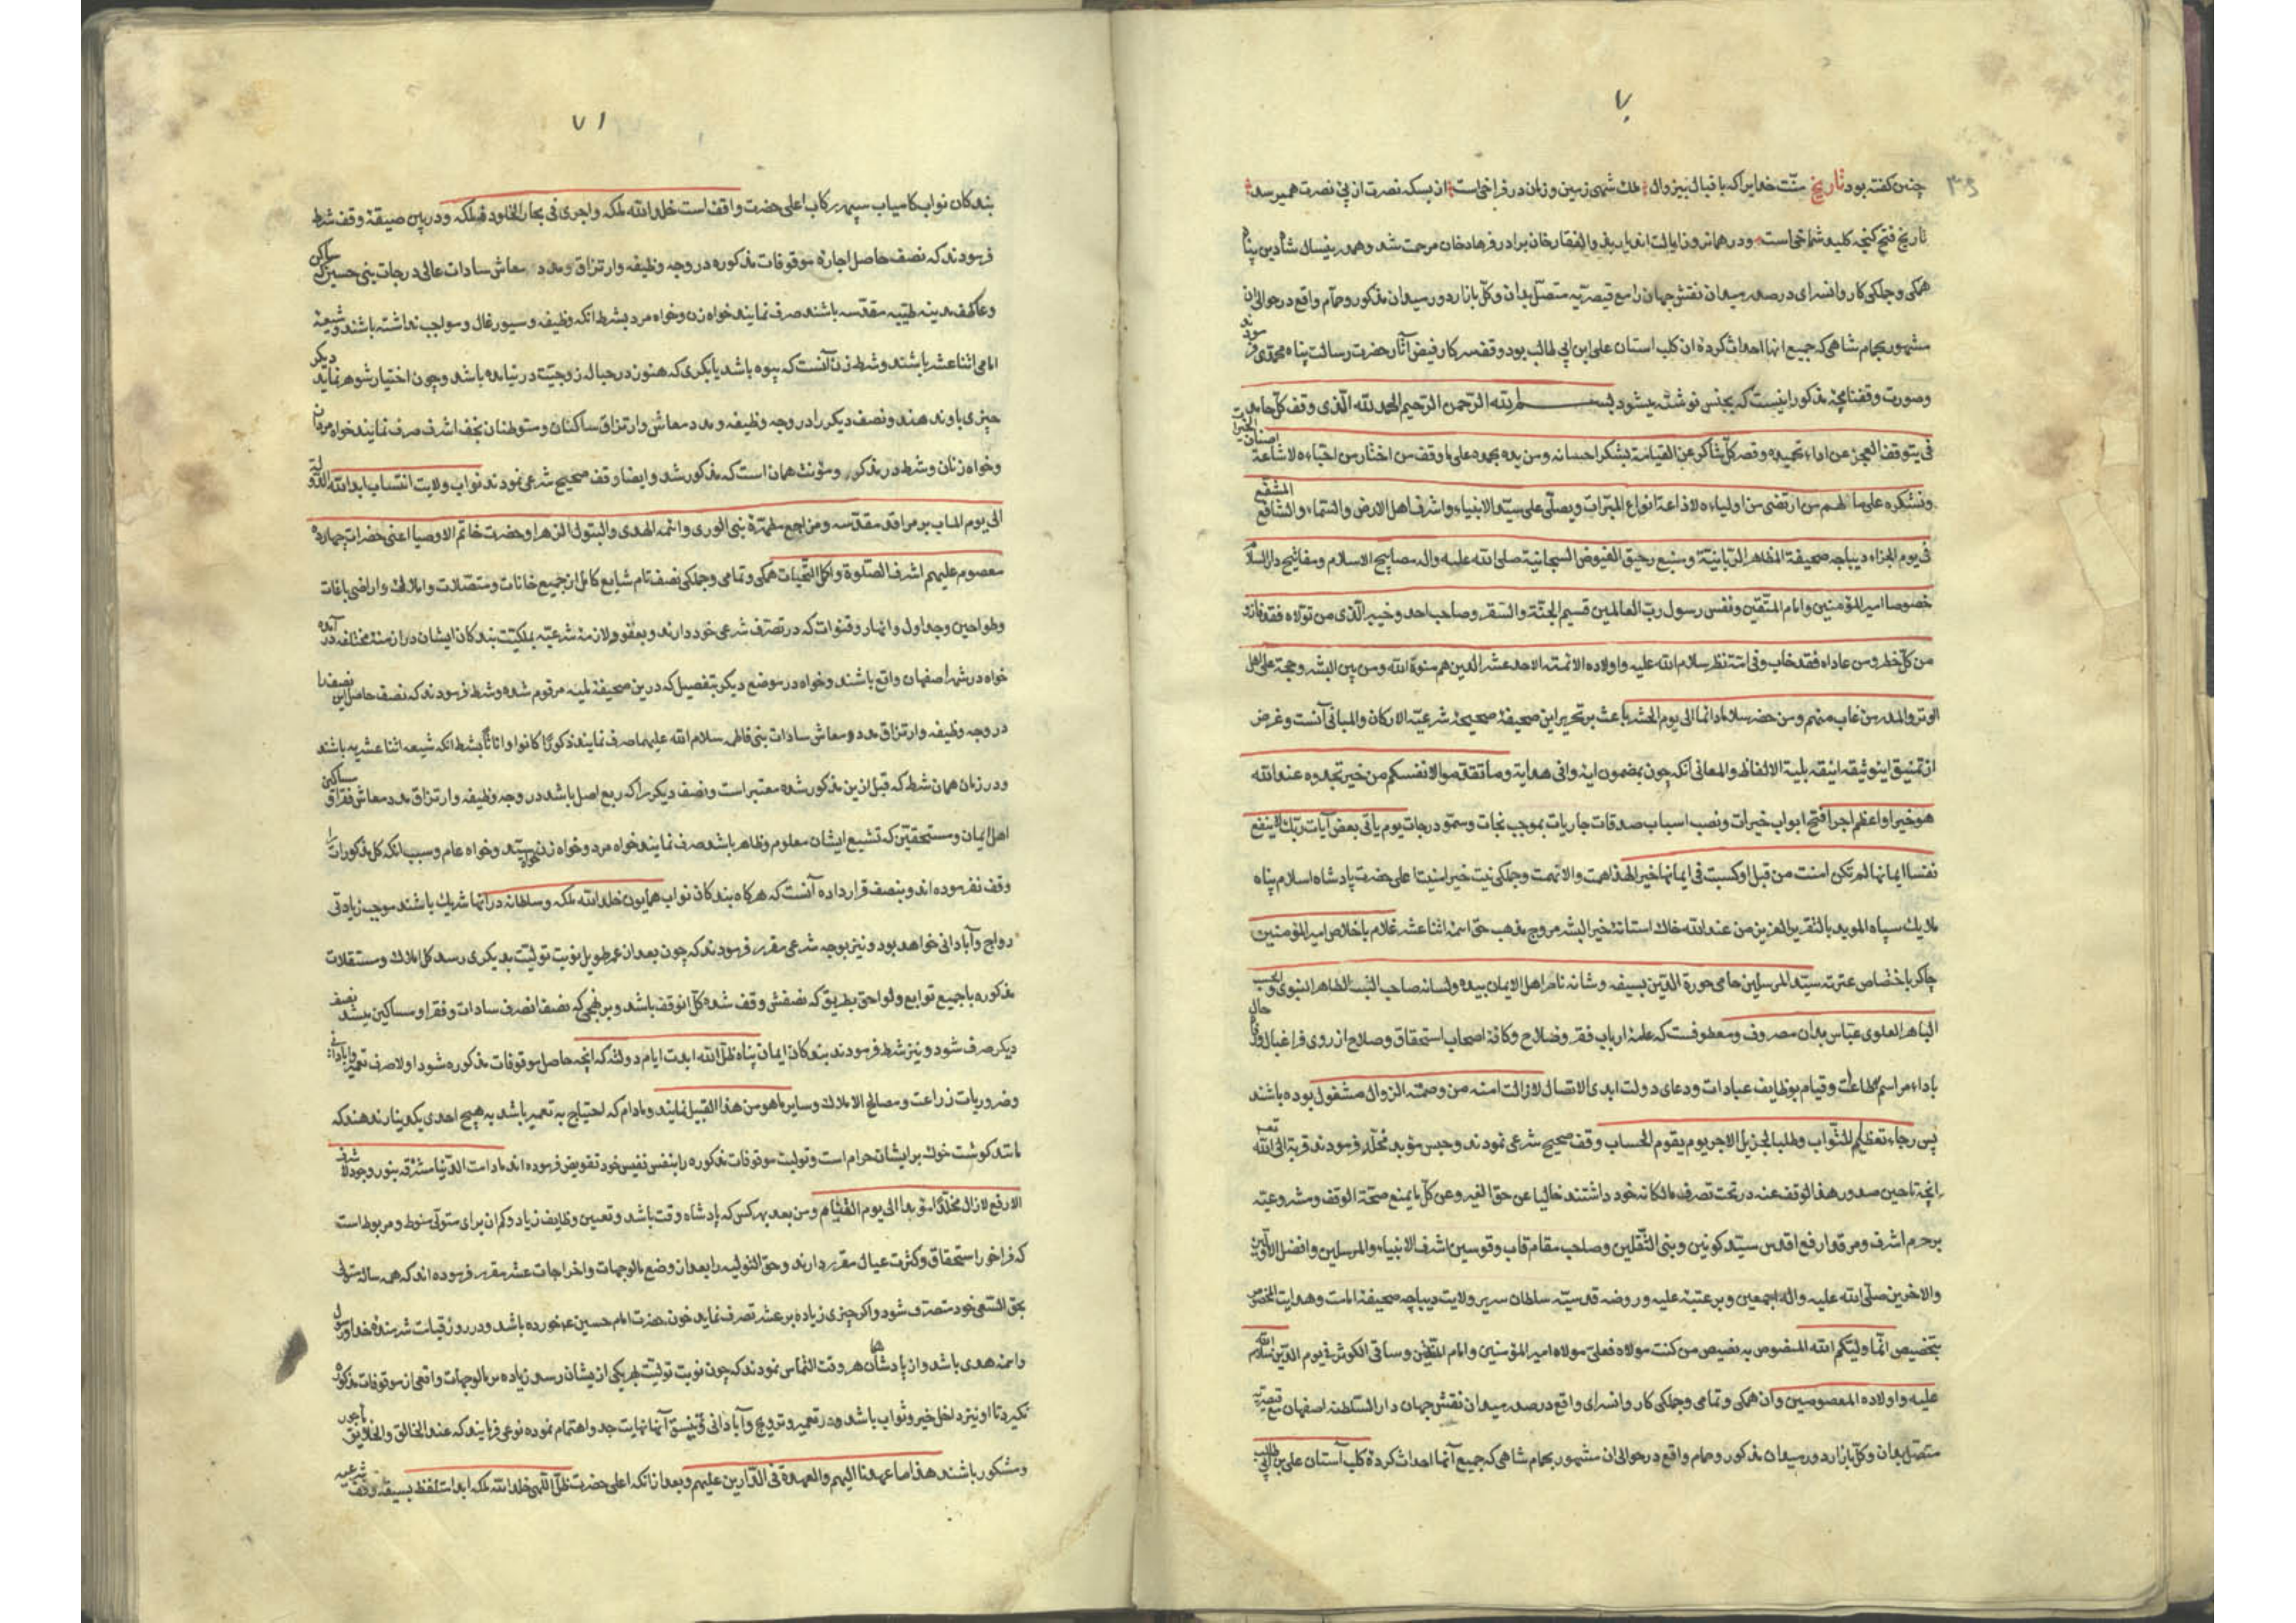 ۷۰
چنین گفته بود تاریخ منّت خدایرا که باقبال بیزوال ملک شهی زمین و زمان در فراخی است از بسکه نصرت از پی نصرت همیرسد
تاریخ فتح گنجه کلید شماخی است و در همان روز ایالت به ذوالفقار خان برادر فرهاد خان مرحمت شد و همدرینسال شاه دین پناه
همگی و جملگی کاروانسرای در صدر میدان نقش جهان را مع قیصریه متصل بدان و کل بازار دور میدان مذکور و حمام واقع در حوالی آن
مشهور بحمام شاهی که جمیع آنها احداث کرده آن کلب آستان علی ابن ابی طالب بود وقف سرکار فیض آثار حضرت رسالت پناه محمدی فرمودند
و صورت وقفنامچه مذکور اینست که بجنس نوشته میشود بسم الله الرحمن الرحیم الحمد لله الّذی وقف کل حامد
فی یتوقف العجز عن اداء تحمیده وقصر کل شاکر عن القیام بشکر احسانه ومن یده نحمده علی ما وقف من اختار من احبّاءه لاشاعة اصناف الخیرات
ونشکره علی ما الهم من ارتضی من اولیاءه لاذاعة انواع المبرّات ویصلّی علی سیّد الانبیاء واشرف اهل الارض والسّماء والشافع المشفّع
فی یوم الجزاء دیباجه صحیفة المظاهر الربّانیّة ومنبع رحیق الفیوض السبحانیّة صلی الله علیه واله مصابیح الاسلام ومفاتیح دارالسلام
خصوصا امیر المؤمنین وامام المتّقین ونفس رسول ربّ العالمین قسیم الجنّة والسّقر وصاحب احد وخیبر الّذی من تولّاه فقد فاز
من کلّ خطر ومن عاداه فقد خاب سلام الله علیه واولاده الائمّة الاحد عشر الّذین هم صفوة الله من بین البشر وحجة علی اهل
الوبر والمدر من غاب منهم ومن حضر سلاما دائما الی یوم الحشر باعث بر تحریر این صحیفهٔ صحیحهٔ شرعیّة الارکان والمبانی آنست وغرض
از تنمیق این وثیقه انیقه بلیة الالفاظ والمعانی آنکه چون بمضمون آیه وافی هدایه وما تقدموا لانفسکم من خیر تجدوه عند الله
هو خیرا واعظم اجرا فتح ابواب خیرات ونصب اسباب صدقات جاریات بموجب نجات وسموّ درجات یوم یاتی بعض آیات ربّک لاینفع
نفسا ایمانها لم تکن آمنت من قبل او کسبت فی ایمانها خیرا لهذا همت والانهمت وجملگی نیت خیر امنیت اعلی حضرت پادشاه اسلام پناه
ملایک سپاه الموید بالنصر العزیز من عند الله خاک آستانهٔ خیر البشر مروج مذهب حق ائمه اثنا عشر غلام باخلاص امیر المؤمنین
چاکر باختصاص عترت سیّد المرسلین حامی حوزة الدّین بسیفه وسنانه ناصر اهل الایمان بیده ولسانه صاحب النّسب الطاهر النبوی والحسب
الباهر العلوی عبّاس بدان مصروف ومعطوفست که عامهٔ ارباب فقر وصلاح وکافهٔ اصحاب استحقاق وصلاح از روی فراغبال ورفاه حال
باداء مراسم طاعات وقیام بوظایف عبادات ودعای دولت ابدی الاتصال لازالت آمنة من وصمة الزوال مشغول بوده باشند
پس رجاء لعظیم الثّواب وطلبا لجزیل الاجر یوم یقوم الحساب وقف صحیح شرعی نمودند وحبس مؤبد مخلّد فرمودند قربة الی الله تعالی
آنچه تا حین صدور هذا الوقف عنه در تحت تصرف مالکانه خود داشتند خالیا عن حق الغیر وعن کلّ ما یمنع صحّة الوقف ومشروعیته
بر حرم اشرف ومرقد ارفع اقدس سیّد کونین ونبی الثّقلین وصاحب مقام قاب قوسین اشرف الانبیاء والمرسلین وافضل الاوّلین
والاخرین صلّی الله علیه واله اجمعین وبر عتبهٔ علیه وروضه قدسیّه سلطان سریر ولایت دیباچه صحیفهٔ امامت وهدایت المخصوص
بتخصیص انّما ولیّکم الله المنصوص به تنصیص من کنت مولاه فعلی مولاه امیر المؤمنین وامام المتقین وساقی الکوثر فی یوم الدّین سلام الله
علیه واولاده المعصومین وآن همگی وتمامی وجملگی کاروانسرای واقع در صدر میدان نقش جهان دار السّلطنه اصفهان مع قیصریّه
متّصل بدان وکلّ بازار دور میدان مذکور وحمام واقع در حوالی آن مشهور بحمام شاهی که جمیع آنها احداث کردهٔ کلب آستان علی بن ابی طالب
۷۱
بندگان نواب کامیاب سپهر رکاب اعلی حضرت واقف است خلد الله ملکه واجری فی بحار الخلود فلکه ودرین صیغهٔ وقف شرط
فرمودند که نصف حاصل اجارهٔ موقوفات مذکوره در وجه وظیفه وارتزاق ومدد معاش سادات عالی درجات بنی حسین که ساکن
وعاکف مدینه طیبه مقدسه باشند صرف نمایند خواه زن وخواه مرد بشرط آنکه وظیفه وسیورغال ومواجب نداشته باشند وشیعهٔ
امامی اثنا عشر باشند وشرط زن آنست که بیوه باشد یا بکری که هنوز در حباله زوجیت در نیامده باشد وچون اختیار شوهر نماید دیگر
چیزی باو ندهند ونصف دیگر را در وجه وظیفه ومدد معاش وارتزاق ساکنان ومتوطنان نجف اشرف صرف نمایند خواه مردان
وخواه زنان وشرط در مذکر ومؤنث همان است که مذکور شد وایضا وقف صحیح شرعی نمودند نواب ولایت انتساب ابد الله دولته
الی یوم المآب بر مراقد مقدّسه ومزاجع مطهرهٔ نبی الوری وائمه الهدی والبتول الزهرا وحضرت خاتم الاوصیا اعنی حضرات چهارده
معصوم علیهم اشرف الصّلوة واکمل التّحیات همگی وتمامی وجملگی نصف تام شایع کامل از جمیع خانات ومستغلات واملاک واراضی باغات
وطواحین وجداول وانهار وقنوات که در تصرف شرعی خود دارند وبعقود لازمه شرعیّه بملکیّت بندگان ایشان در ازمنهٔ مختلفه در آمده
خواه در شهر اصفهان واقع باشند وخواه در موضع دیگر بتفصیل که درین صحیفهٔ ملیّه مرقوم شده وشرط فرمودند که نصف حاصل این نصف را
در وجه وظیفه وارتزاق مدد معاش سادات بنی فاطمه سلام الله علیهما صرف نمایند ذکورًا کانوا او اناثًا بشرط آنکه شیعه اثنا عشریه باشند
ودر زنان همان شرط که قبل ازین مذکور شده معتبر است ونصف دیگر را که ربع اصل باشد در وجه وظیفه وارتزاق مدد معاش فقرا و مساکین
اهل ایمان ومستحقین که تشیع ایشان معلوم وظاهر باشد صرف نمایند خواه مرد وخواه زن خواه سیّد وخواه عام وسبب آنکه کل مذکورات را
وقف نفرموده اند وبنصف قرار داده آنست که هرگاه بندگان نواب همایون خلد الله ملکه وسلطانه در آنها شریک باشند موجب زیادتی
رواج وآبادانی خواهد بود ونیز بوجه شرعی مقرر فرمودند که چون بعد از عمر طویل نوبت تولیت بدیگری رسد کل املاک ومستغلات
مذکوره با جمیع توابع ولواحق بطریق که نصفش وقف شده کلّ آن وقف باشد وبر نهجی که نصف آنصرف سادات وفقرا ومساکین میشد نصف
دیگر صرف شود ونیز شرط فرمودند بندگان ایمان پناه ظلّ الله ابدت ایام دولته که آنچه حاصل موقوفات مذکوره شود اولا صرف تعمیر وآبادانی
وضروریات زراعت ومصالح الاملاک وسایر ما هو من هذا القبیل نمایند ومادام که احتیاج به تعمیر باشد به هیچ احدی یک دینار ندهند که
مانند گوشت خوک بر ایشان حرام است وتولیت موقوفات مذکوره را بنفس نفیس خود تفویض فرموده اند مادامت الدّنیا مشرّفه بنور وجوده الاشرف
الارفع لازال مخلّدًا مؤبدا الی یوم القیام ومن بعد بهرکس که پادشاه وقت باشد وتعیین وظایف زیاد وکم آن برای متولّی منوط ومربوط است
که فراخور استحقاق وکثرت عیال مقرر دارند وحق التّولیه را بعد از وضع مالوجهات واخراجات عشر مقرر فرموده اند که هر ساله متولی
بحق السّعی خود متصرّف شود واگر چیزی زیاده بر عشر تصرف نماید خون حضرت امام حسین عم خورده باشد ودر روز قیامت شرمندهٔ خدا ورسول
وائمه هدی باشد واز پادشاهان هر وقت التماس نمودند که چون نوبت تولیت بهر یکی از یشان رسد زیاده بر مالوجهات واقعی از موقوفات مذکوره
نگیرد تا او نیز داخل خیر وثواب باشد ودر تعمیر وترویج وآبادانی ونسق آنها نهایت جد واهتمام نموده نوعی فرمایند که عند الخالق والخلایق ماجور
ومشکور باشند هذا ما عهدنا الیهم والعهدة فی الدّارین علیهم وبعد از آنکه اعلی حضرت ظلّ اللّهی خلد الله ملکه ابدا تلفظ بصیغه وقف شرعیه